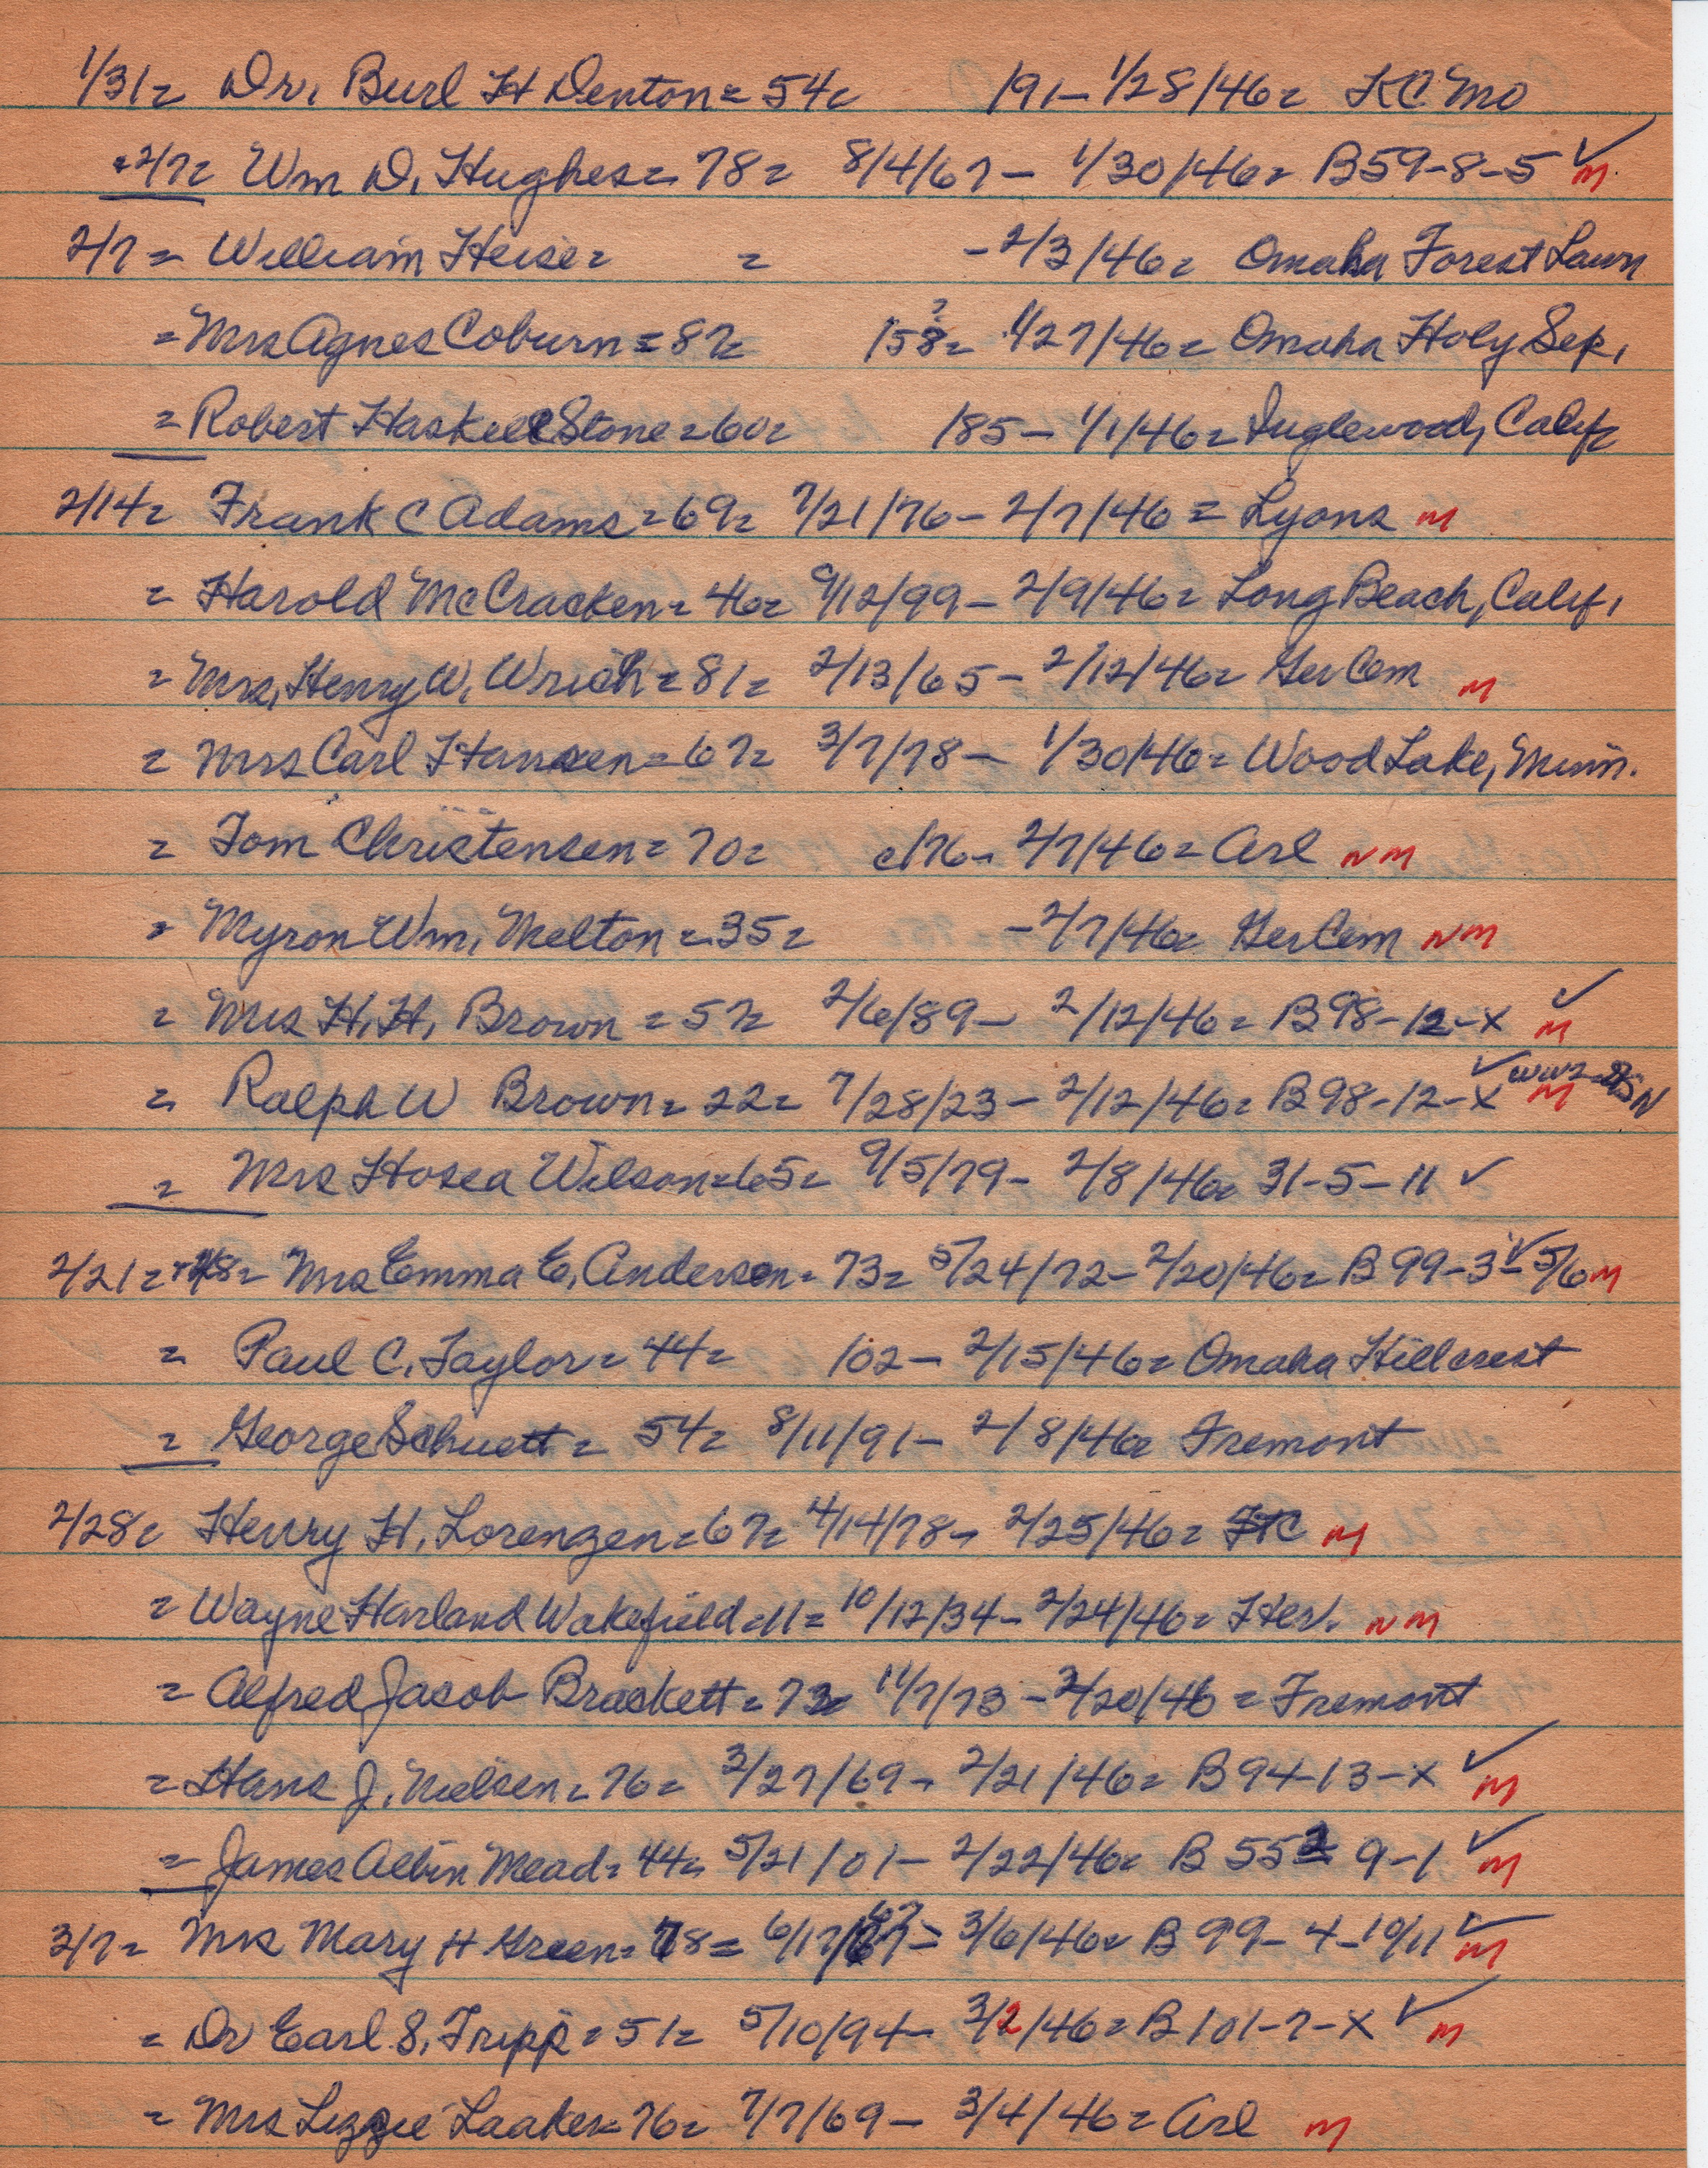 1/31= Dr. Burl H Denton= 54= 191- 1/28/46= KC Mo
=2/7= Wm D. Hughes= 78= 8/4/67- 1/30/46= B59-8-5 ✓ M
2/7= William Heise= = -2/3/46= Omaha Forest Lawn
=Mrs Agnes Coburn=87= 158?= 1/27/46= Omaha Holy Sep.
=Robert Haskell Stone=60= 185- 1/1/46= Inglewood, Calif=
2/14= Frank C Adams=69= 7/21/76- 2/7/46= Lyons M
= Harold McCracken= 46= 9/12/99- 2/9/46= Long Beach, Calif.
= Mrs. Henry W. Wrich=81= 2/13/65- 2/12/46= Ger Cem M
= Mrs Carl Hansen=67= 3/7/78- 1/30/46= Wood Lake, Minn.
= Tom Christensen= 70= c176- 2/7/46= Arl NM
= Myron Wm. Melton=35= -2/7/46= Ger Cem NM
= Mrs H.H. Brown=57= 2/6/89- 2/12/46= B98-12-X ✓ M
= Ralph W Brown= 22= 7/28/23- 2/12/46= B98-12-X ✓ M WW2 N
= Mrs Hosea Wilson=65= 9/5/79- 2/8/46= 31-5-11 ✓
2/21= Mrs Emma E. Anderson= 73= 5/24/72- 2/20/46= B99-3-5/6 ✓ M
= Paul C. Taylor= 44= 102- 2/15/46= Omaha Hillcrest
= George Schuett= 54= 8/11/91- 2/8/46= Fremont
2/28= Henry H. Lorenzen=67= 4/14/78- 2/25/46= M
= Wayne Harland Wakefield=11= 10/12/34- 2/24/46= Her. NM
= Alfred Jacob Brackett=72= 11/7/73- 2/20/46= Fremont
= Hans J. Nielsen= 76= 3/27/69- 2/21/46= B94-13-X ✓ M
= James Albin Mead= 44= 5/21/01- 2/22/46= B 552 9-1 ✓ M
3/7= Mrs Mary H Green= 78= 6/17/67= 3/6/46= B99-4-10/11 ✓ M
= Dr Earl S. Tripp=51= 5/10/94- 3/2/46= B101-7-X ✓ M
= Mrs Lizzie Laaker=76= 7/7/69- 3/4/46= Arl M